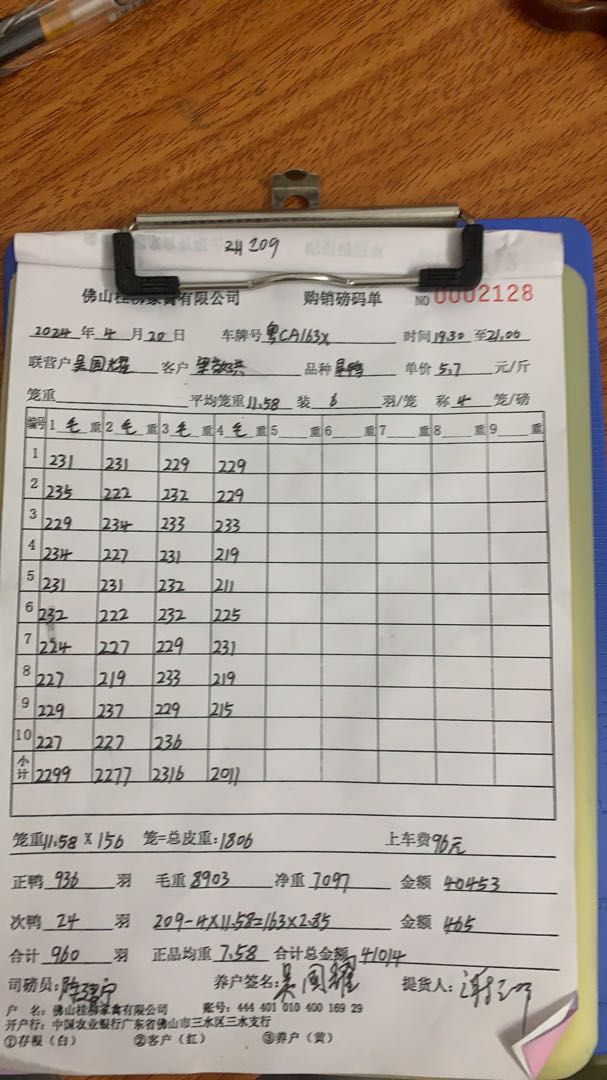 佛山桂柳家禽有限公司 购销磅码单 NO 0002128
2024 年 4 月 20 日 车牌号 粤CA163X 时间 19.30 至 21.00
联营户 吴国耀 客户 品种 单价 5.7 元/斤
笼重 平均笼重 11.58 装 6 羽/笼 称 4 笼/磅
编号 1 毛 重 2 毛 重 3 毛 重 4 毛 重 5 重 6 重 7 重 8 重 9 重
1 231 231 229 229
2 235 222 232 229
3 229 234 233 233
4 234 227 231 219
5 231 231 232 211
6 232 222 232 225
7 224 227 229 231
8 227 219 233 219
9 229 237 229 215
10 227 227 236
小计 2299 2277 2316 2011
笼重 11.58 X 156 笼=总皮重: 1806 上车费 96元
正鸭 936 羽 毛重 8903 净重 7097 金额 40453
次鸭 24 羽 209-4X11.58=163X2.85 金额 465
合计 960 羽 正品均重 7.58 合计总金额 41014
司磅员: 养户签名: 吴国耀 提货人:
户 名: 佛山桂柳家禽有限公司 账号: 444 401 010 400 169 29
开户行: 中国农业银行广东省佛山市三水区三水支行
①存根（白） ②客户（红） ③养户（黄）